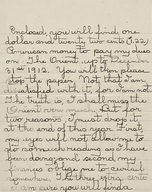 Enclosed you will find one
dollar and twenty two cents (1.22)
American money to pay my dues
on "The Orient" up to December
31st 1912. You will then please
stop the paper. Not that I am
dissatisfied with it, for I am not.
The truth is, I shall miss the
Orient now
two reasons I must drop it
at the end of this year. First
my eyes will not allow me to
do so much reading as I have
been doing and second my
finances oblige me to curtail
somewhere. Letting it into
I am sure you will find a